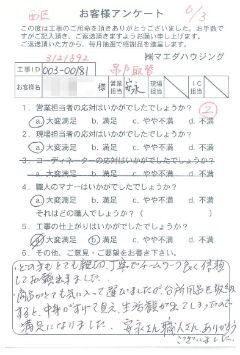 西区
6/3
お客様アンケート
この度は工事のご用命を頂きありがとうございました。お手数で
すがご記入頂き、ご返送頂きますようお願い申し上げます。
ご返送頂いた方から、毎月抽選で感謝品を進呈します。
3121392
㈱マエダハウジング
工事ID
003-00/81
お客様名
様
営業担当
工事担当
IC担当
1. 営業担当者の応対はいかがでしたでしょうか?
②
a. 大満足 b. 満足 c. やや不満 d. 不満
2. 現場担当者の応対はいかがでしたでしょうか?
a. 大満足 b. 満足 c. やや不満 d. 不満
3. コーディネーターの応対はいかがでしたでしょうか?
a. 大満足 b. 満足 c. やや不満 d. 不満
4. 職人のマナーはいかがでしたでしょうか?
a. 大満足 b. 満足 c. やや不満 d. 不満
それはどの職人でしょうか? (
)
5. 工事の仕上がりはいかがでしたでしょうか?
a. 大満足 b. 満足 c. やや不満 d. 不満
6. その他、ご意見・ご要望をお書き下さい。
いつもとても親切、丁寧でチームワーク良く信頼
してお願い出来ました。
商品がとても気に入って選びましたが、台所用品を収納
すると、中身がすけて見え、生活観が出てしまったので
満足になりました。
職人さん ありがとう
ございました。